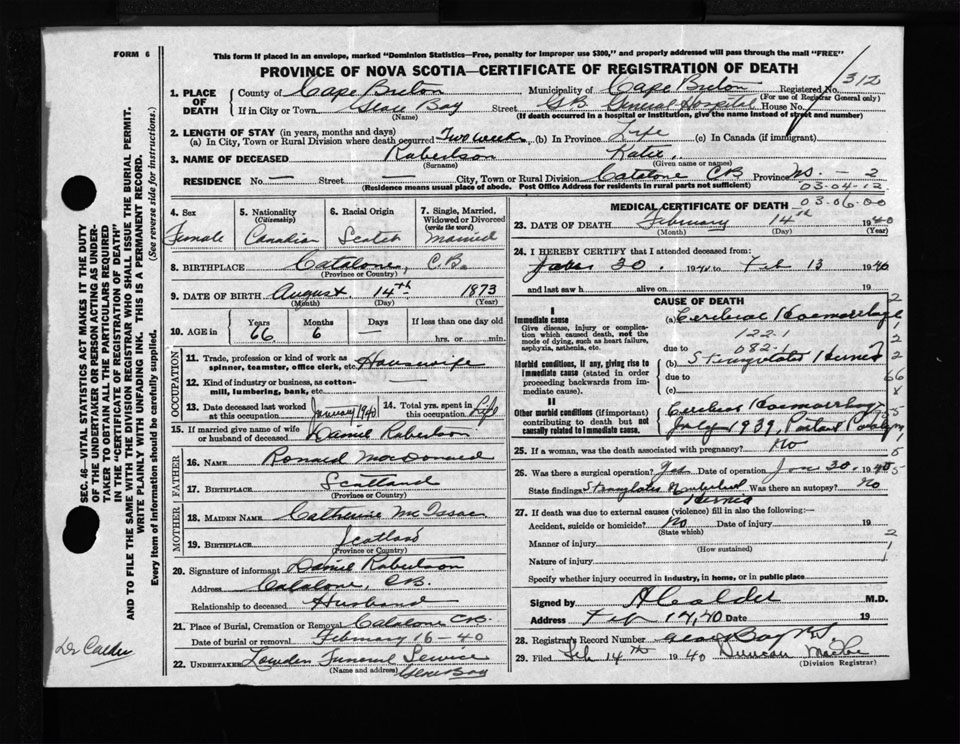 FORM 6
This form if placed in an envelope, marked "Dominion Statistics—Free, penalty for improper use $300," and properly addressed will pass through the mail "FREE"
PROVINCE OF NOVA SCOTIA—CERTIFICATE OF REGISTRATION OF DEATH
1. PLACE OF DEATH
County of Cape Breton Municipality of Cape Breton Registered No. 312
(For use of Registrar General only)
If in City or Town Glace Bay Street G.B. General Hospital House No.
(Name) (If death occurred in a hospital or institution, give the name instead of street and number)
2. LENGTH OF STAY (in years, months and days)
(a) In City, Town or Rural Division where death occurred Two weeks (b) In Province Life (c) In Canada (if immigrant)
3. NAME OF DECEASED Robertson Katie
(Surname) (Given name or names)
RESIDENCE No. — Street — City, Town or Rural Division Catalone CB Province NS. — 2
(Residence means usual place of abode. Post Office Address for residents in rural parts not sufficient) 03-04-12
4. Sex Female
5. Nationality (Citizenship) Canadian
6. Racial Origin Scotch
7. Single, Married, Widowed or Divorced (write the word) Married
8. BIRTHPLACE Catalone, C.B.
(Province or Country)
9. DATE OF BIRTH August 14th 1873
(Month) (Day) (Year)
10. AGE in Years 66 Months 6 Days — If less than one day old
hrs. or min.
OCCUPATION
11. Trade, profession or kind of work as spinner, teamster, office clerk, etc. Housewife
12. Kind of industry or business, as cotton-mill, lumbering, bank, etc.
13. Date deceased last worked at this occupation January 1940 14. Total yrs. spent in this occupation Life
15. If married give name of wife or husband of deceased Daniel Robertson
FATHER
16. NAME Ronald MacDonald
17. BIRTHPLACE Scotland
(Province or Country)
MOTHER
18. MAIDEN NAME Catherine McIssac
19. BIRTHPLACE Scotland
(Province or Country)
20. Signature of informant Daniel Robertson
Address Catalone, CB.
Relationship to deceased Husband
21. Place of Burial, Cremation or Removal Catalone CB.
Date of burial or removal February 16-40
22. UNDERTAKER Lowden Funeral Service
(Name and address) Glace Bay
MEDICAL CERTIFICATE OF DEATH 03-06-00
23. DATE OF DEATH February 14th 1940
(Month) (Day) (Year)
24. I HEREBY CERTIFY that I attended deceased from:
30. 1940 to Feb 13 1940
and last saw h alive on 19
CAUSE OF DEATH
I
Immediate cause (a) Cerebral Haemorrhage
Give disease, injury or complication which caused death, not the mode of dying, such as heart failure, asphyxia, asthenia, etc.
122.1
due to 082-1
Morbid conditions, if any, giving rise to immediate cause (stated in order proceeding backwards from immediate cause).
(b) Strangulated Hernia
due to
(c)
II
Other morbid conditions (if important) contributing to death but not causally related to immediate cause.
Cerebral Haemorrhage
July 1939, Partial Paralysis
25. If a woman, was the death associated with pregnancy? No
26. Was there a surgical operation? Yes Date of operation Jan 30, 1940
State findings Strangulated Umbilical Hernia Was there an autopsy? No
27. If death was due to external causes (violence) fill in also the following:—
Accident, suicide or homicide? No Date of injury 19
(State which)
Manner of injury
(How sustained)
Nature of injury
Specify whether injury occurred in industry, in home, or in public place
Signed by A Calder M.D.
Address Feb 14, 40 Date 19
28. Registrar's Record Number Glace Bay NS
29. Filed Feb 14th 1940 Duncan
(Division Registrar)
SEC. 46—VITAL STATISTICS ACT MAKES IT THE DUTY
OF THE UNDERTAKER OR PERSON ACTING AS UNDER-
TAKER TO OBTAIN ALL THE PARTICULARS REQUIRED
IN THE "CERTIFICATE OF REGISTRATION OF DEATH"
AND TO FILE THE SAME WITH THE DIVISION REGISTRAR WHO SHALL ISSUE THE BURIAL PERMIT.
WRITE PLAINLY WITH UNFADING INK. THIS IS A PERMANENT RECORD.
Every item of information should be carefully supplied. (See reverse side for instructions.)
Dr Calder